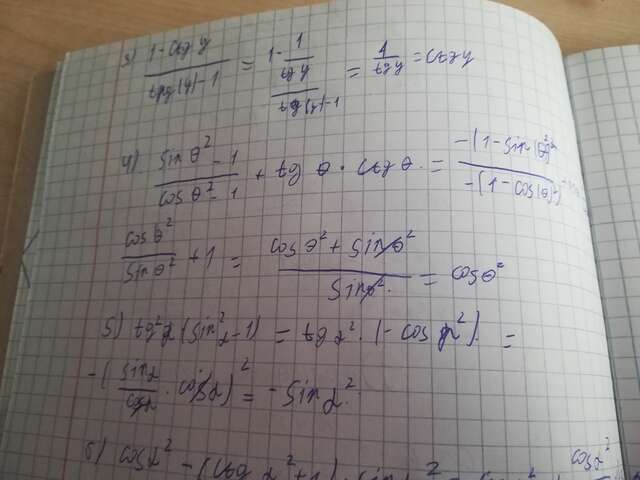 3) (1 - ctg y)/(tg(y) - 1) = (1 - 1/(tg y))/(tg(y) - 1) = 1/(tg y) = ctg y
4) (sin θ² - 1)/(cos θ² - 1) + tg θ · ctg θ = (-(1 - sin(θ)²)/(-(1 - cos(θ)²)
(cos θ²)/(sin θ²) + 1 = (cos θ² + sin θ²)/(sin θ²) = cos θ²
5) tg²α (sin²α - 1) = tg α² · (- cos α²) =
- ((sin α)/(cos α) · cos α)² = - sin α²
6) cos α² - (ctg α² + 1) · sin α² =